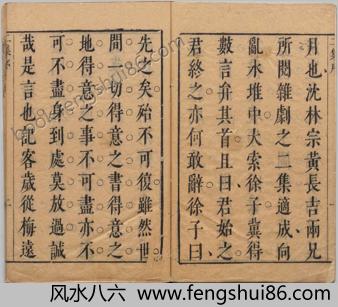 月也沈林宗黃長吉兩兄
所閱雜劇之二集適成向
亂水堆中大索徐子冀得
數言弁其首且曰君始之
君終之亦何敢辭徐子曰
先之矣殆不可復雖然世
間一切得意之書得意之
地得意之事不可盡亦不
可不盡身到處莫放過誠
哉是言也記客歲從梅遠
www.fengshui86.com
风水八六 www.fengshui86.com